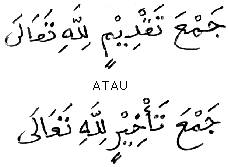 جَمْعَ تَقْدِيْمٍ لِلّٰهِ تَعَالَى
ATAU
جَمْعَ تَأْخِيْرٍ لِلّٰهِ تَعَالَى